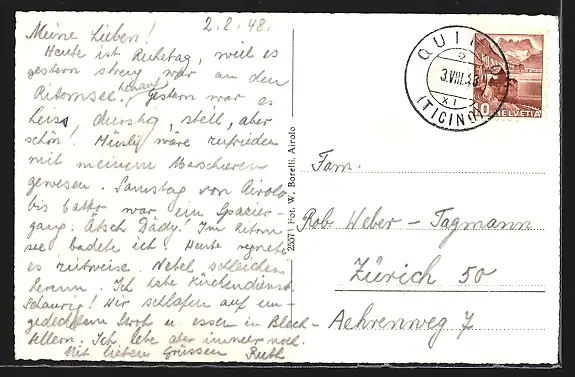 2.8.48.
Meine Lieben!
Heute ist Ruhetag, weil es
gestern streng war an den
Ritomsee hinauf. Gestern war es
heiss, durstig, steil, aber
schön! Müsli wäre zufrieden
mit meinem Marschieren
gewesen. Samstag von Airolo
bis war ein Spazier-
gang. Ätsch Dädy! Im Ritom
see badete ich. Heute regnete
es zeitweise. Nebel schleichen
herum. Ich habe Küchendienst.
Schaurig! Wir schlafen auf un-
gedecktem Stroh u. essen in Blech-
tellern. Ich lebe aber immer noch.
Mit lieben Grüssen Ruth
2557 Fot. W. Borelli, Airolo
QUINTO
3.VIII.48
XI
(TICINO)
10 HELVETIA
Fam.
Rob. Weber - Tagmann
Zürich 50
Aehrenweg 7